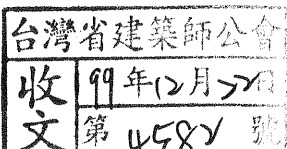 台灣省建築師公會
收文
99年12月22日
第4582號